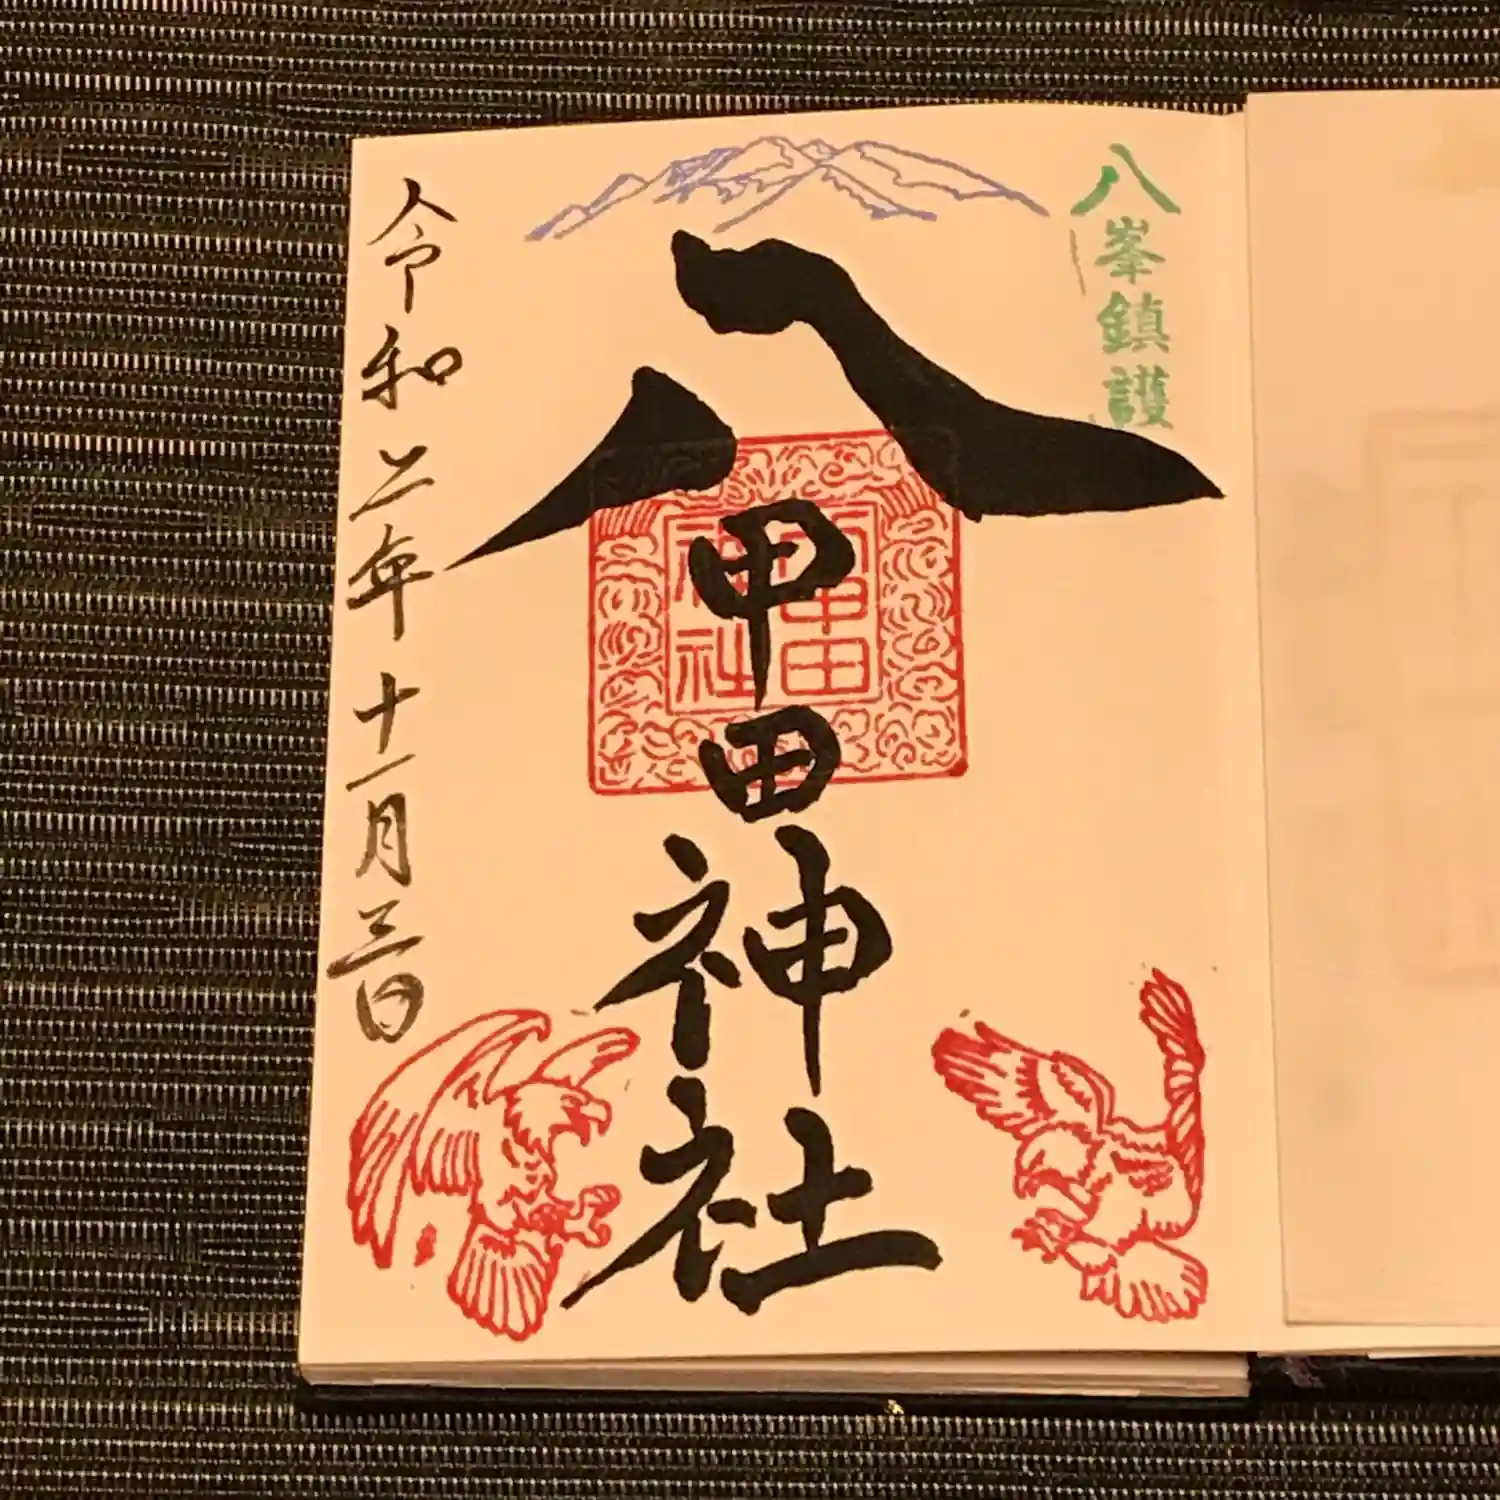 八峯鎮護
八甲田神社
八甲田
神社
令和二年十一月三日